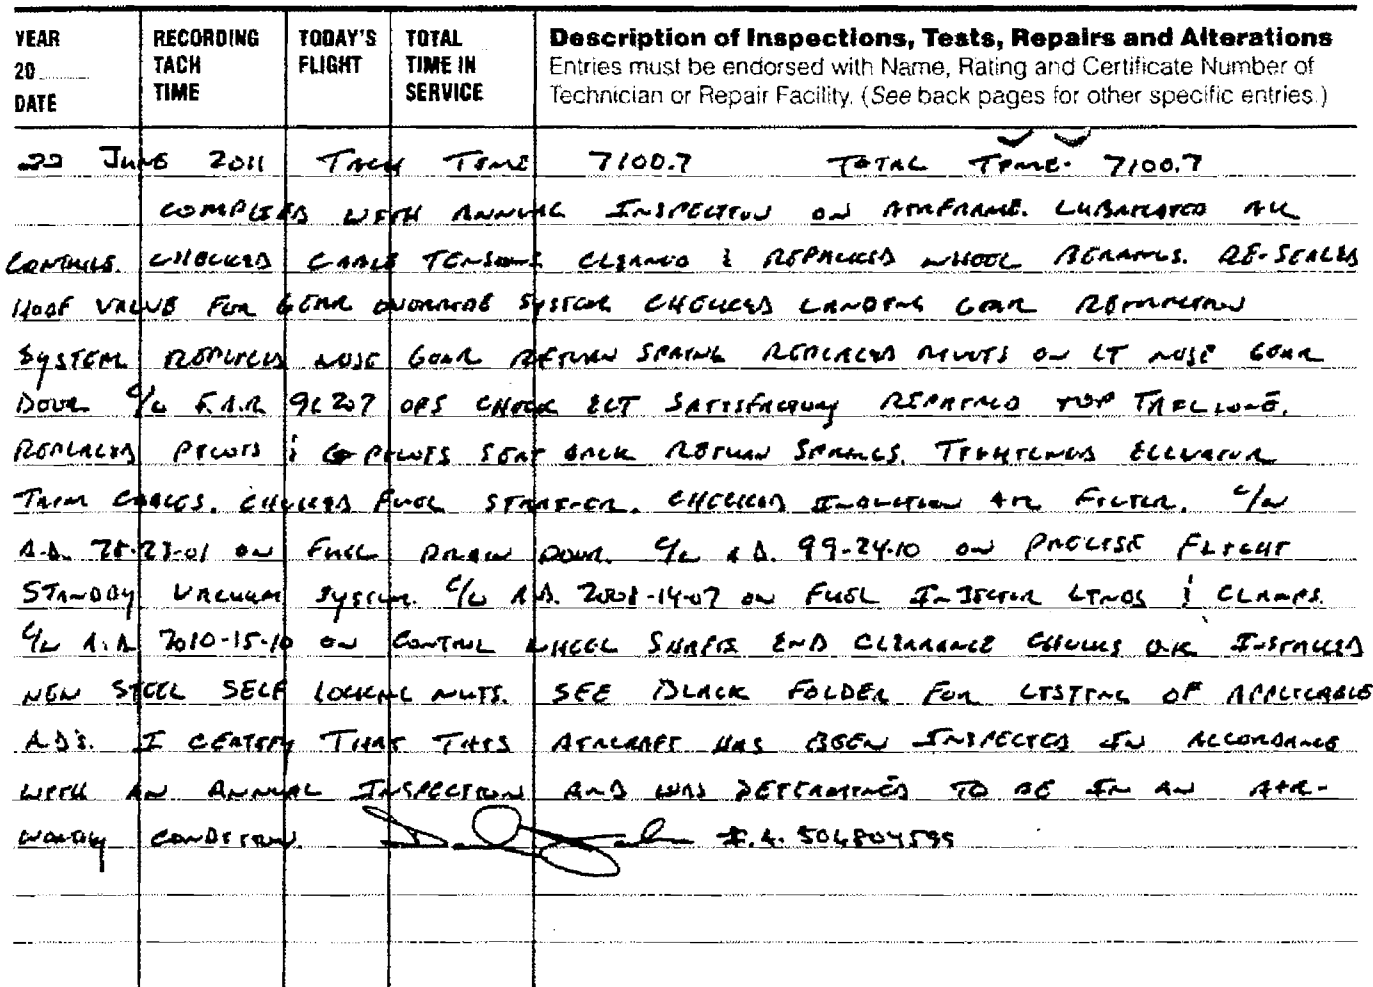 YEAR
20
DATE
RECORDING
TACH
TIME
TODAY'S
FLIGHT
TOTAL
TIME IN
SERVICE
Description of Inspections, Tests, Repairs and Alterations
Entries must be endorsed with Name, Rating and Certificate Number of
Technician or Repair Facility. (See back pages for other specific entries.)
22 JUNE 2011 TACH TIME 7100.7 TOTAL TIME. 7100.7
COMPLIED WITH ANNUAL INSPECTION ON AIRFRAME. LUBRICATED ALL
CONTROLS. CHECKED CABLE TENSIONS CLEANED & REPACKED WHEEL BEARINGS. RE-SEALED
VALVE FOR GEAR OVERRIDE SYSTEM CHECKED LANDING GEAR RETRACTION
SYSTEM REPLACED NOSE GEAR RETURN SPRING REPLACED RIVETS ON LT NOSE GEAR
DOOR C/W F.A.R 91.207 OPS CHECK ELT SATISFACTORY REPAIRED TOP TAILCONE.
REPLACED PILOTS & CO PILOTS SEAT BACK RETURN SPRINGS. TIGHTENED ELLEVATOR
TRIM CABLES. CHECKED FUEL STRAINER. CHECKED INDUCTION AIR FILTER. C/W
A.D. 78-23-01 ON FUEL DRAIN DOOR. C/W A.D. 99-24-10 ON PRECISE FLIGHT
STANDBY VACUUM SYSTEM. C/W A.D. 2008-14-07 ON FUEL INJECTOR LINES & CLAMPS.
C/W A.D. 2010-15-10 ON CONTROL WHEEL SHAFTS END CLEARANCE CHECKS O.K INSTALLED
NEW STEEL SELF LOCKING NUTS. SEE BLACK FOLDER FOR LISTING OF APPLICABLE
A.D'S. I CERTIFY THAT THIS AIRCRAFT HAS BEEN INSPECTED IN ACCORDANCE
WITH AN ANNUAL INSPECTION AND WAS DETERMINED TO BE IN AN AIR-
WORTHY CONDITION. I.A. 504804599